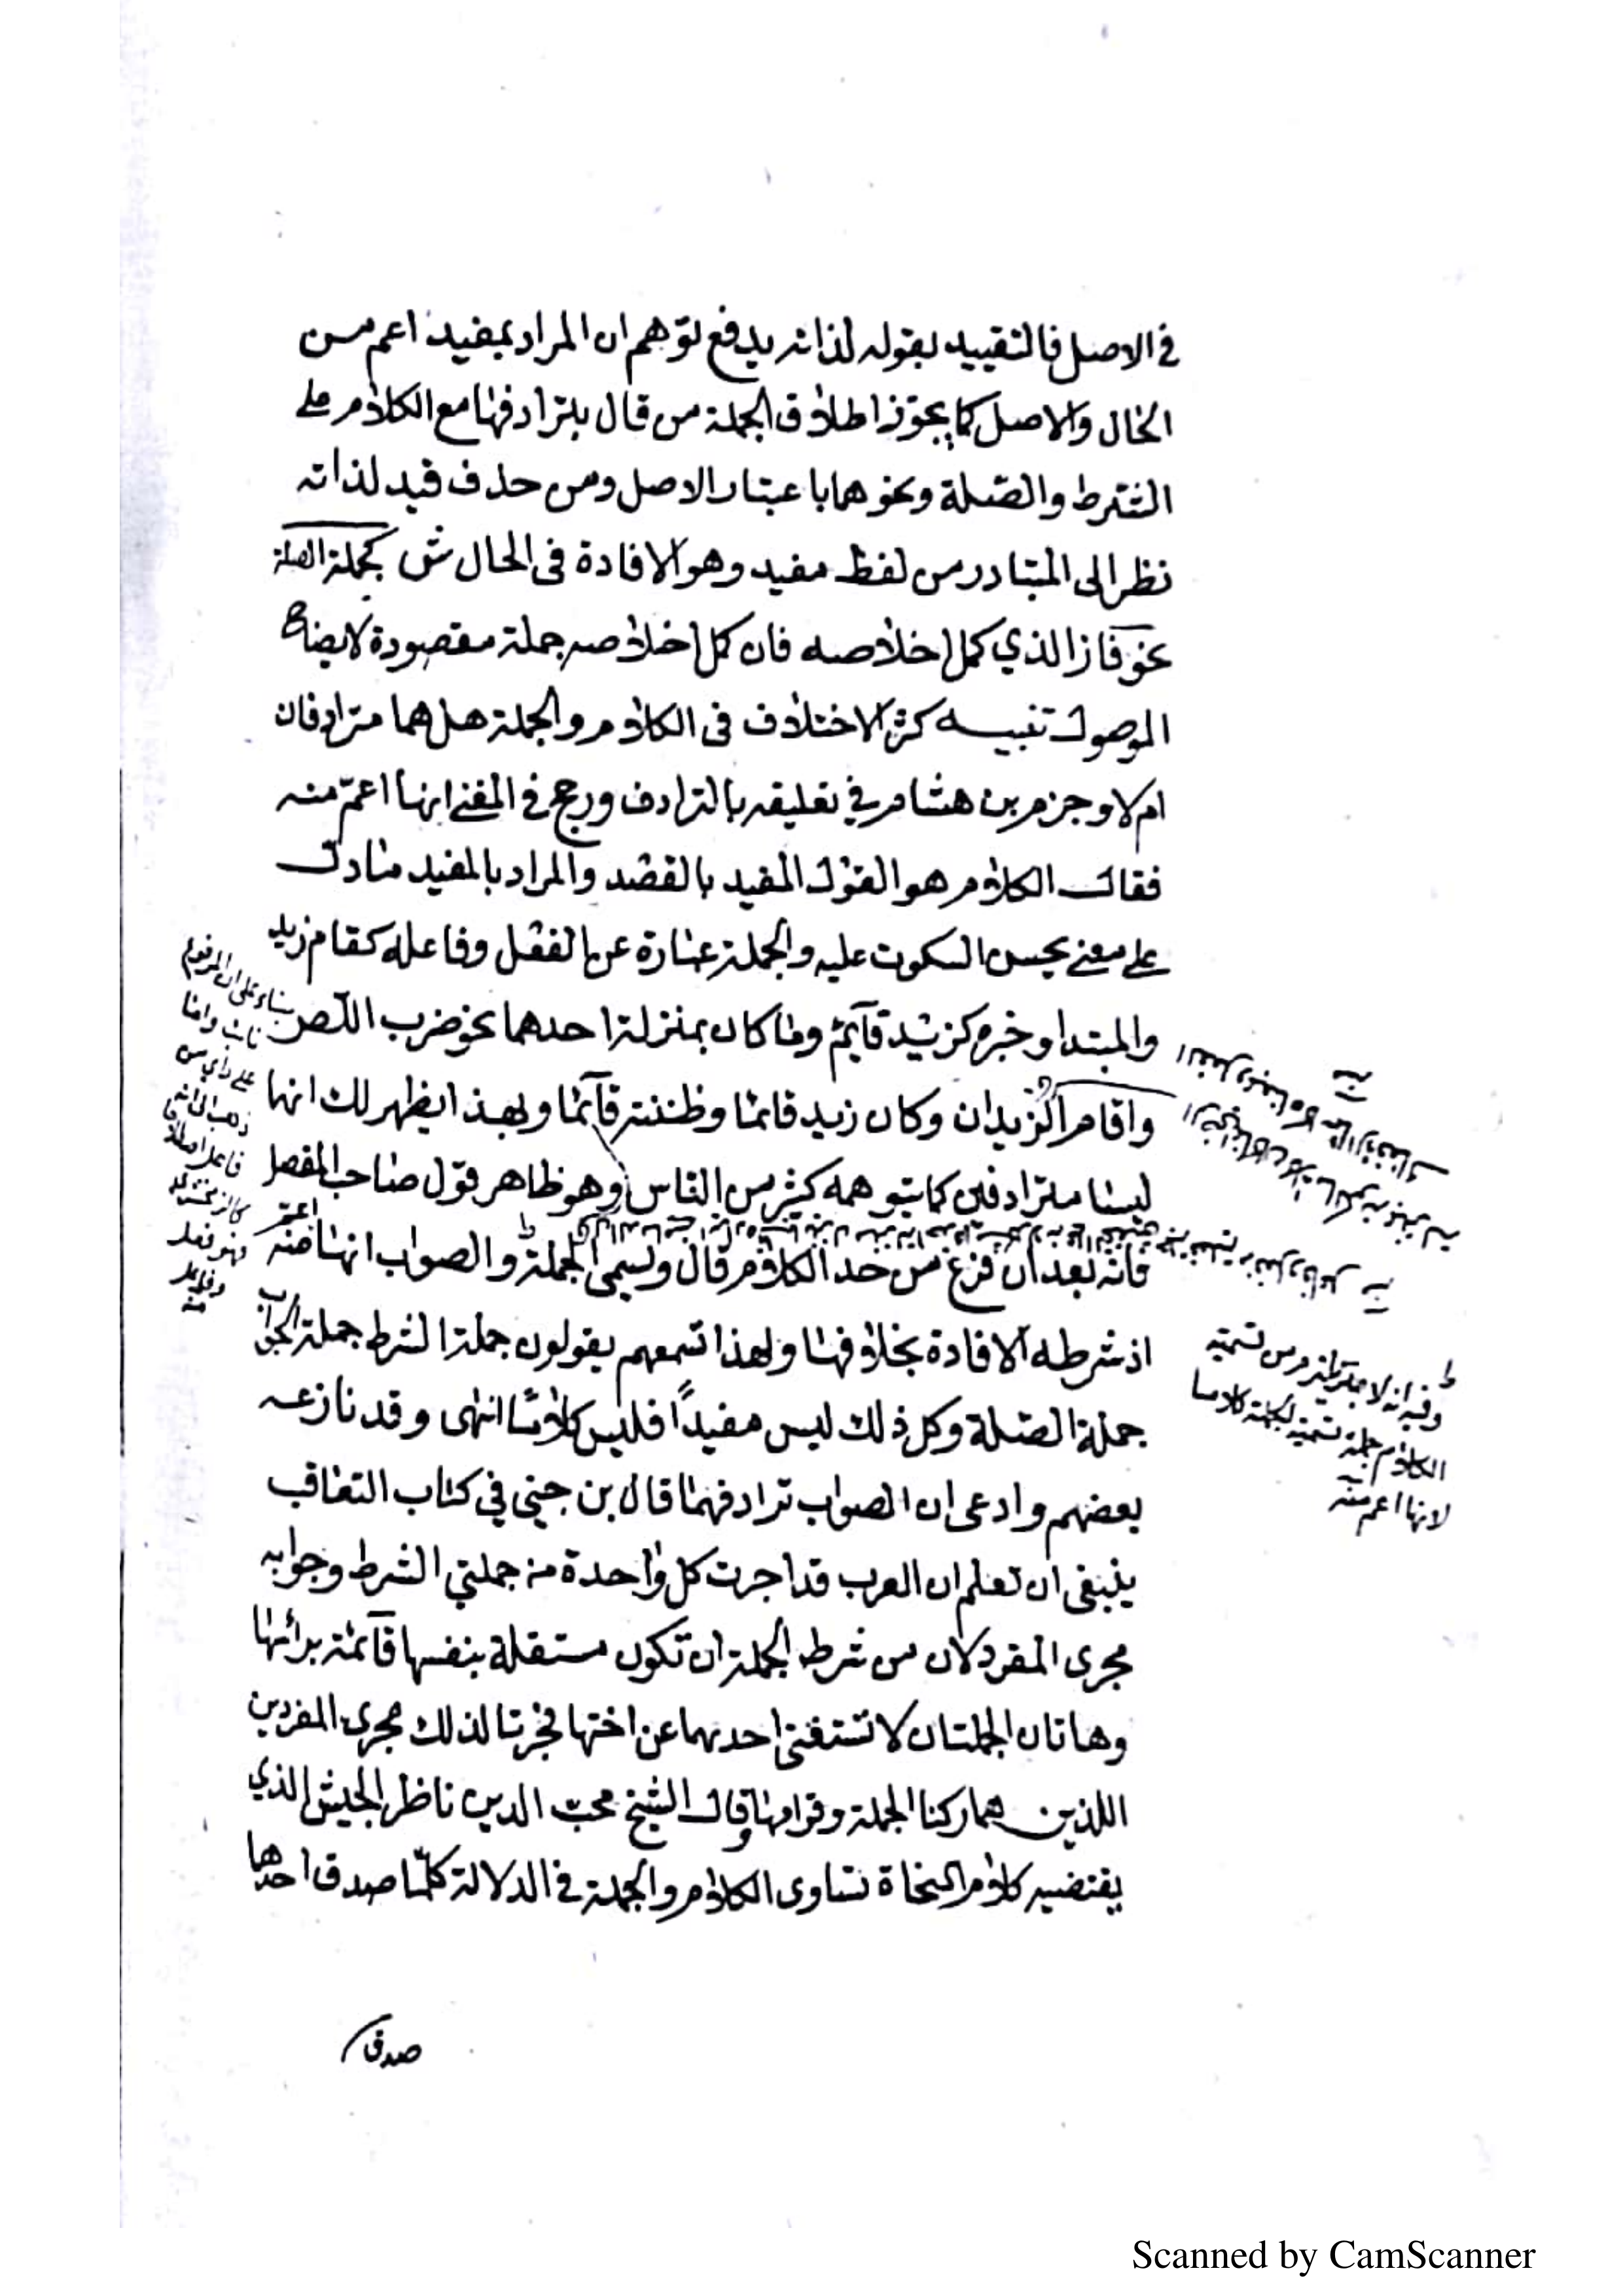 في الاصل فالتقييد بقوله لذاته يدفع توهم ان المراد بمفيد اعم من
الحال والاصل كما يجوز اطلاق الجملة من قال بترادفها مع الكلام على
الشرط والصلة ونحوهما باعتبار الاصل ومن حذف قيد لذاته
نظر الى المتبادر من لفظ مفيد وهو الافادة فى الحال ش كجملة الصلة
نحو فاز الذي كمل اخلاصه فان كمل اخلاصه جملة مقصودة لايضاح
الموصول تنبيه كثر الاختلاف فى الكلام والجملة هل هما مترادفان
ام لا وجزم بن هشام في تعليقه بالترادف ورجح في المغني انها اعم منه
فقال الكلام هو القول المفيد بالقصد والمراد بالمفيد ما دل
على معنى يحسن السكوت عليه والجملة عبارة عن الفعل وفاعله كقام زيد
والمبتدا وخبره كزيد قآئم وما كان بمنزلة احدهما نحو ضرب اللص
واقام الزيدان وكان زيد قائما وظننته قآئما وبهذا يظهر لك انها
ليسا مترادفين كما يتوهمه كثير من الناس وهو ظاهر قول صاحب المفصل
فانه بعد ان فرغ من حد الكلام قال وتسمى الجملة والصواب انها اعم منه
اذ شرطه الافادة بخلافها ولهذا تسمعهم يقولون جملة الشرط جملة الجواب
جملة الصلة وكل ذلك ليس مفيداً فليس كلاما انتهى وقد نازعه
بعضهم وادعى ان الصواب ترادفهما قال بن جني في كتاب التعاقب
ينبغى ان تعلم ان العرب قد اجرت كل واحدة من جملتي الشرط وجوابه
مجرى المفرد لان من شرط الجملة ان تكون مستقلة بنفسها قآئمة برائها
وهاتان الجملتان لا تستغني احديهما عن اختها فجرتا لذلك مجرى المفردين
اللذين هما ركنا الجملة وقوامها وقال الشيخ محب الدين ناظر الجيش الذي
يقتضيه كلام النحاة تساوى الكلام والجملة في الدلالة كلما صدق احدهما
صدق
بناء على ان المرفوع
نائب واما
على راي من
ذهب الى انه
فاعل اصطلاحا
كالزمخشري
فهو فعل
وفاعل
منه
وفيه انه لا يلزم من تسمية
الكلام جملة تسمية الجملة كلاما
لانها اعم منه
Scanned by CamScanner